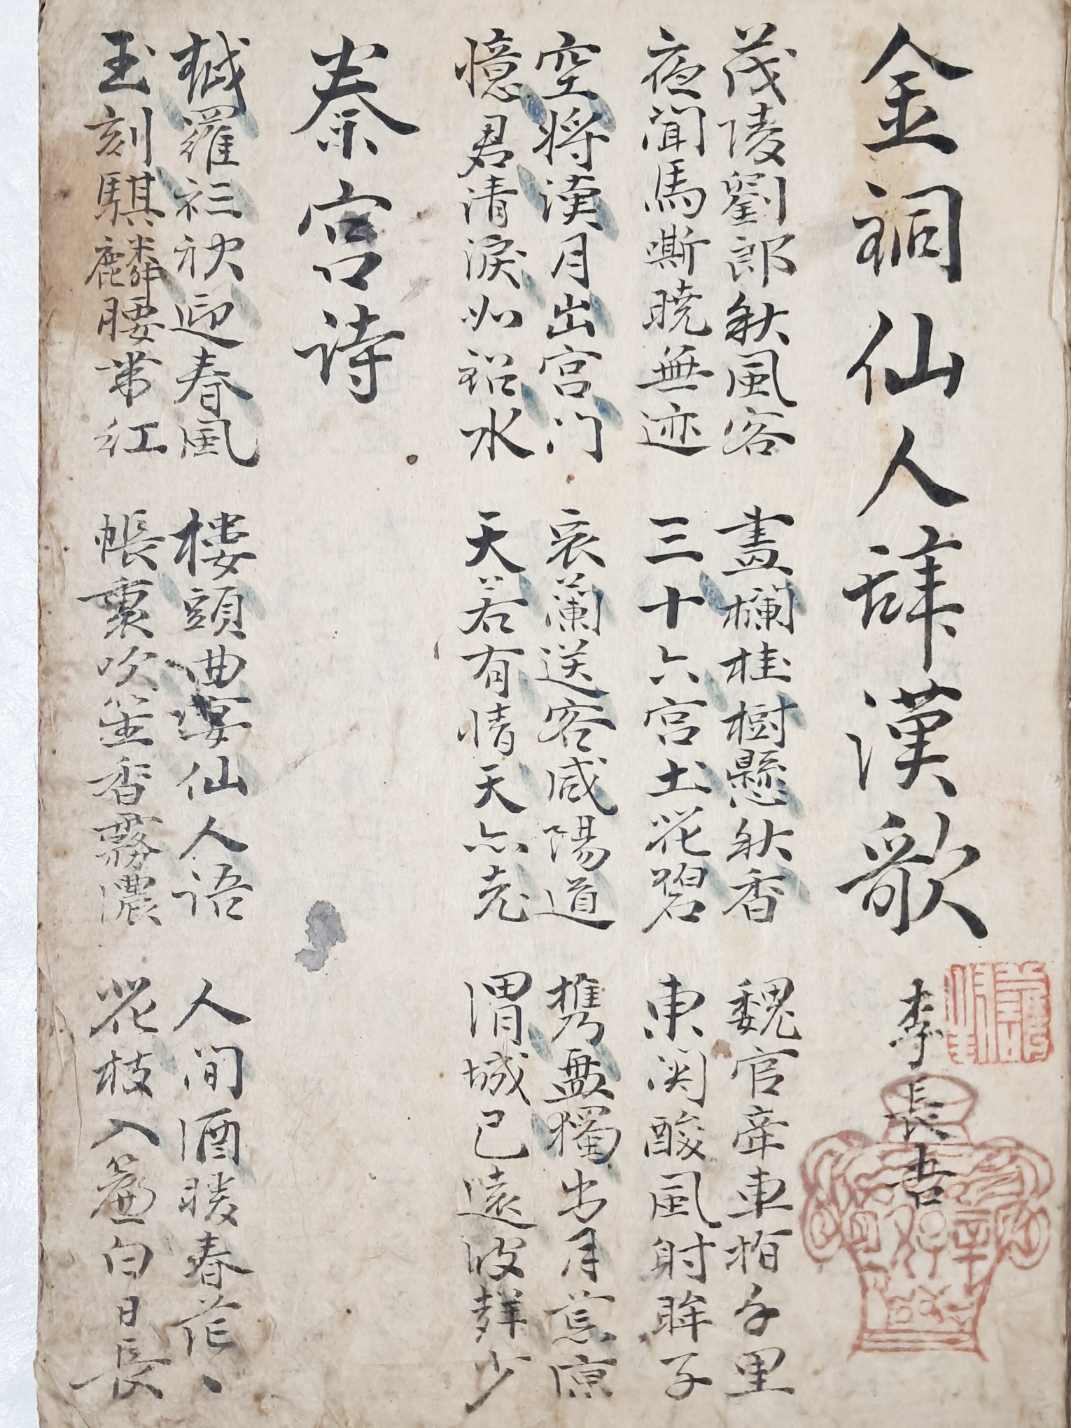 金銅仙人辞漢歌 李長吉
茂陵劉郎秋風客 畫欄桂樹懸秋香 魏官牽車指千里
夜聞馬嘶曉無迹 三十六宮土花碧 東関酸風射眸子
空将漢月出宮门 衰蘭送客咸陽道 携盤獨出月荒凉
憶君清淚如鉛水 天若有情天亦老 渭城已遠波聲少
秦宮詩
越羅衫袂迎春風 樓頭曲宴仙人語 人间酒暖春茫丶
玉刻騏麟腰帶红 帳裏吹笙香霧濃 花枝入簾白日長